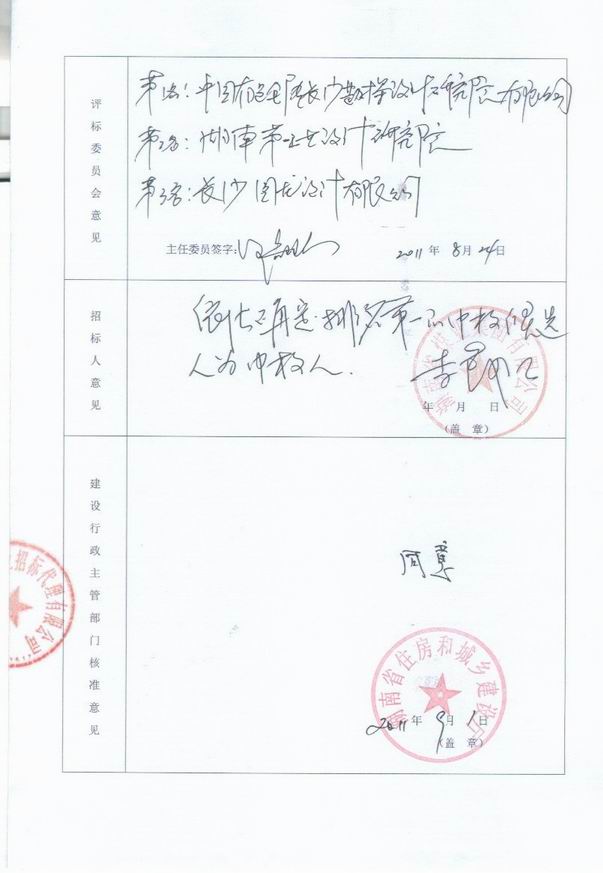 评标委员会意见
第一名：中国有色金属长沙勘察设计研究院有限公司
第二名：湖南第一工业设计研究院
第三名：长沙国龙设计有限公司
主任委员签字：
2011年8月24日
招标人意见
依法定标排名第一的中标候选
人为中标人.
年 月 日
（盖 章）
建设行政主管部门核准意见
招标代理有限公司
湖南省住房和城乡建设厅
2011年9月1日
（盖 章）